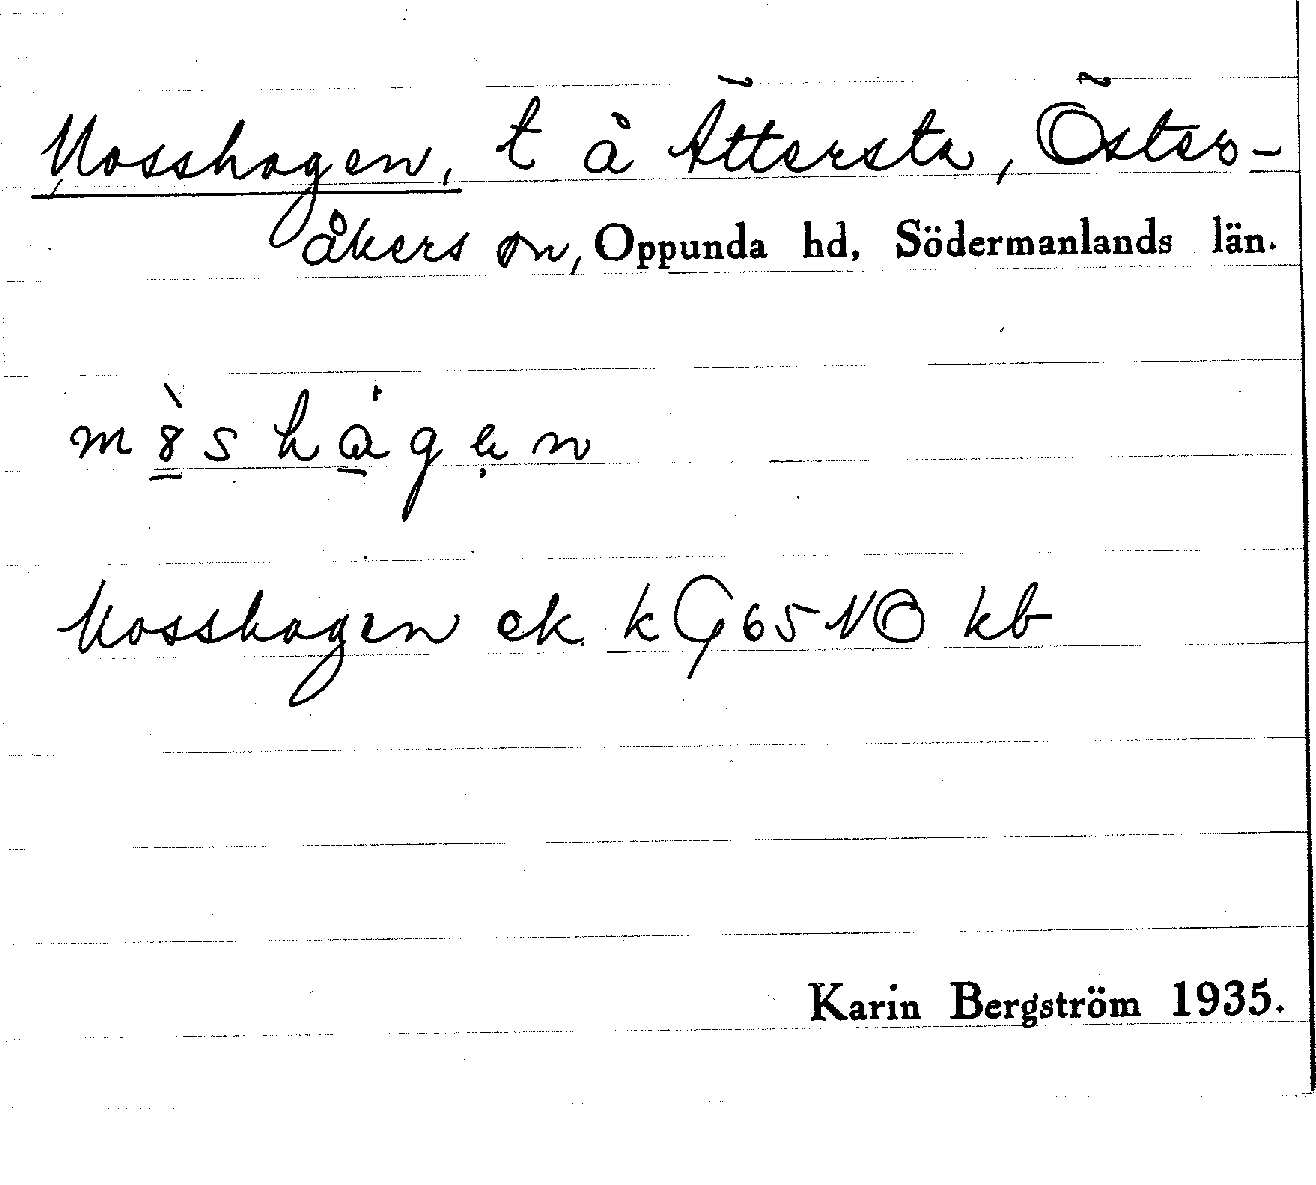 Mosshagen, t å Ättersta, Öster-
åkers sn, Oppunda hd, Södermanlands län.
m8̀shágen
Mosshagen ek kG65NO kb
Karin Bergström 1935.